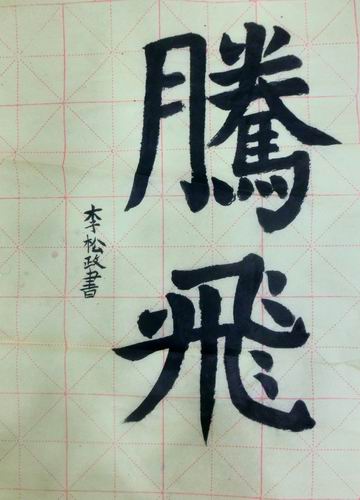 騰飛
李松政書